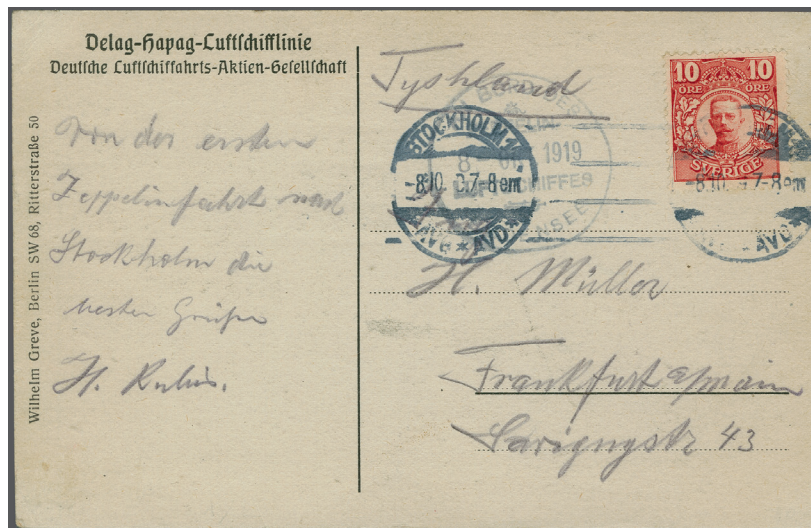 Delag-Hapag-Luftschifflinie
Deutsche Luftschiffahrts-Aktien-Gesellschaft
Wilhelm Greve, Berlin SW 68, Ritterstraße 50
Von der ersten
Zeppelinfahrt nach
Stockholm die
besten Grüße
H.
Tyskland
10 10
ÖRE ÖRE
SVERIGE
STOCKHOLM
8.10. 7-8 em
AVG * AVD *
AN BORD DER
8 1919
LUFTSCHIFFES
BODENSEE
8.10. 7-8 em
AVD
H. Müller
Frankfurt a/Main
Savignystr 43